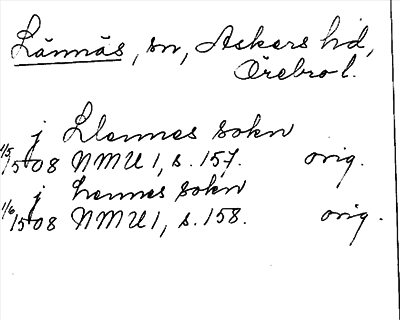 Lännäs, sn, Askers hd,
Örebro l.
j Llennes sokn
1/5 1508 NMU 1, s. 157. orig.
j hennes sokn
1/6 1508 NMU 1, s. 158. orig.